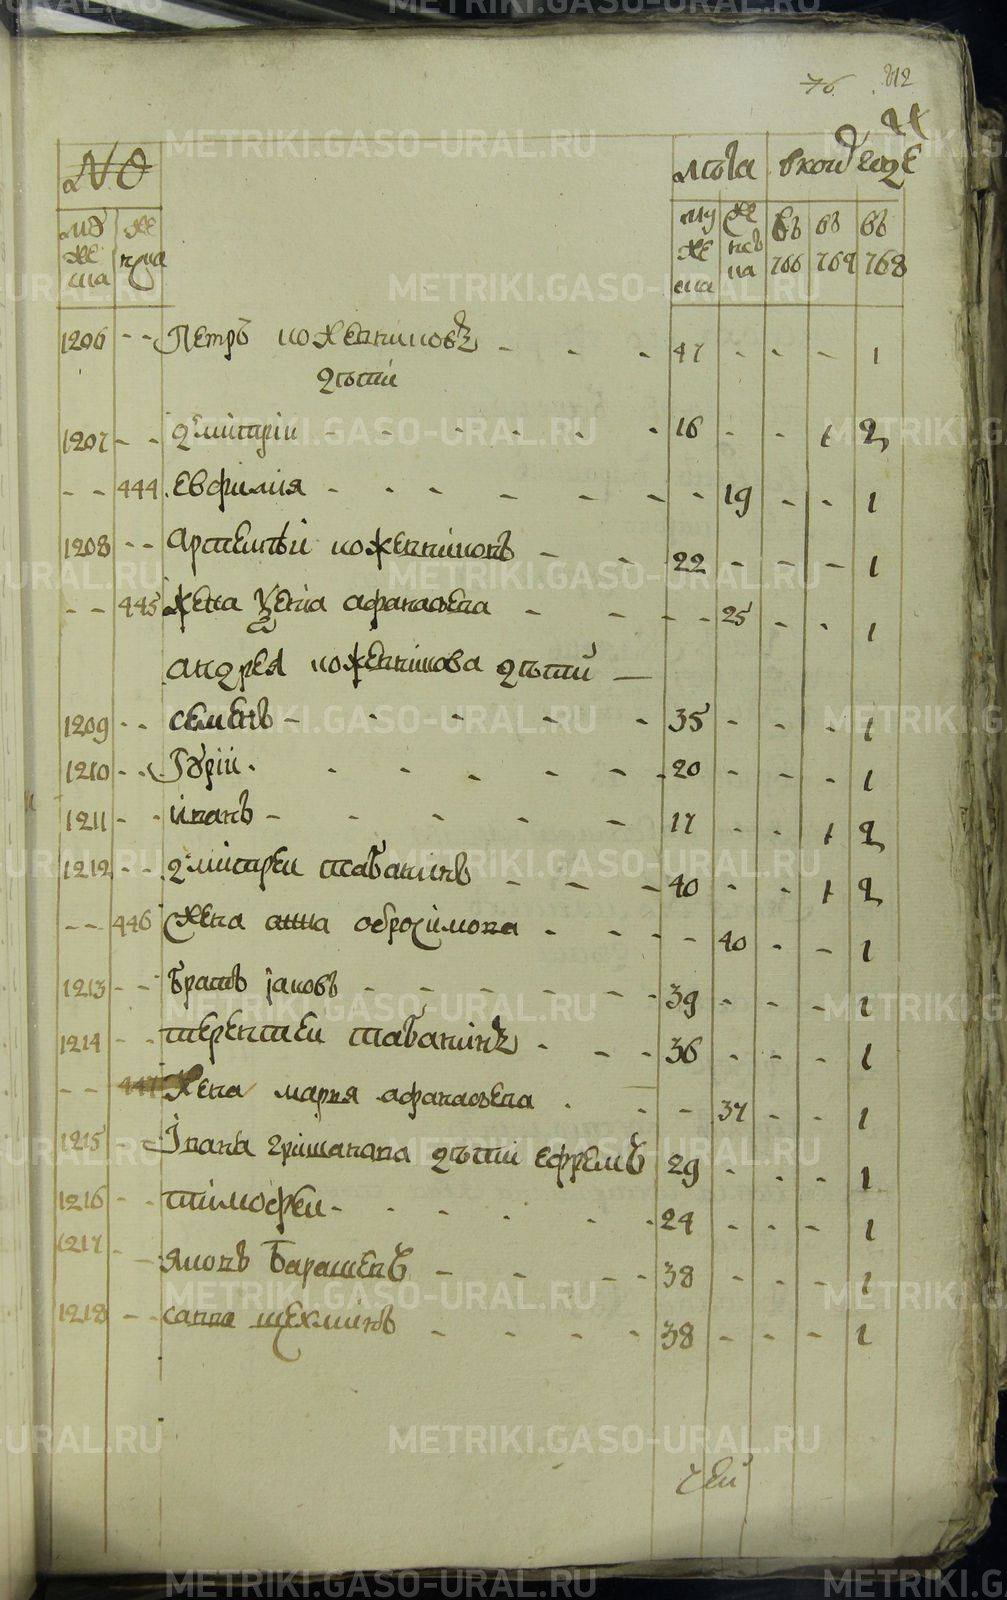 76 212
№ лѣта вкоидеизе
му же ска же нска му же ска же нск на въ 766 въ 767 въ 768
1206 - - Петръ кожевниковъ - - - 47 - - - 1
дѣти
1207 - - дмитріи - - - - - - 16 - - 1 2
- - 444 Евфимия - - - - - - - 19 - - 1
1208 - - артемѣи кожевниковъ - - 22 - - - 1
- - 445 жена ѯенїа афанасьева - - - - 25 - - 1
андрея кожевникова дѣти
1209 - - семенъ - - - - - - 35 - - - 1
1210 - - Гурїи - - - - - - 20 - - - 1
1211 - - иванъ - - - - - 17 - - 1 2
1212 - - дмитреи табачикъ - - - 40 - - 1 2
- - 446 жена анна обросимова - - - - 40 - - 1
1213 - - братъ јаковъ - - - - - - - 39 - - - 1
1214 - - терентеи табачикъ - - - 36 - - - 1
- - 447 Жена мария афанасьева - - - 37 - - 1
1215 - - Iвана гришанова дѣти ефремъ 29 - - - 1
1216 - - тимофеи - - - - - - 24 - - - 1
1217 - - яковъ барашевъ - - - - 38 - - - 1
1218 - - савва щехминъ - - - - 38 - - - 1
METRIKI.GASO-URAL.RU